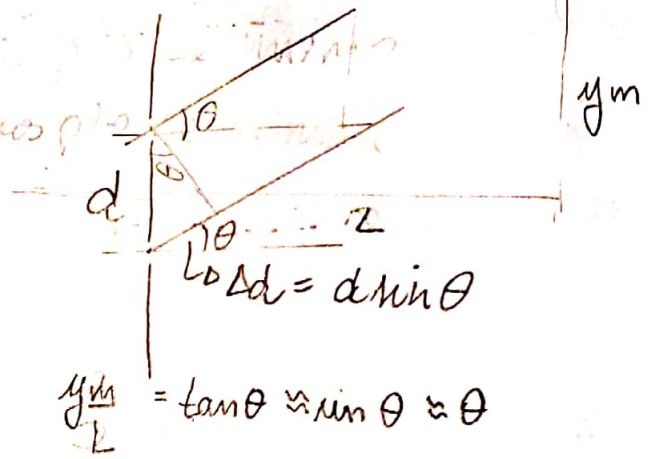 θ
ym
θ
d
θ
L
Δd = d sin θ
ym/L = tan θ ≈ sin θ ≈ θ